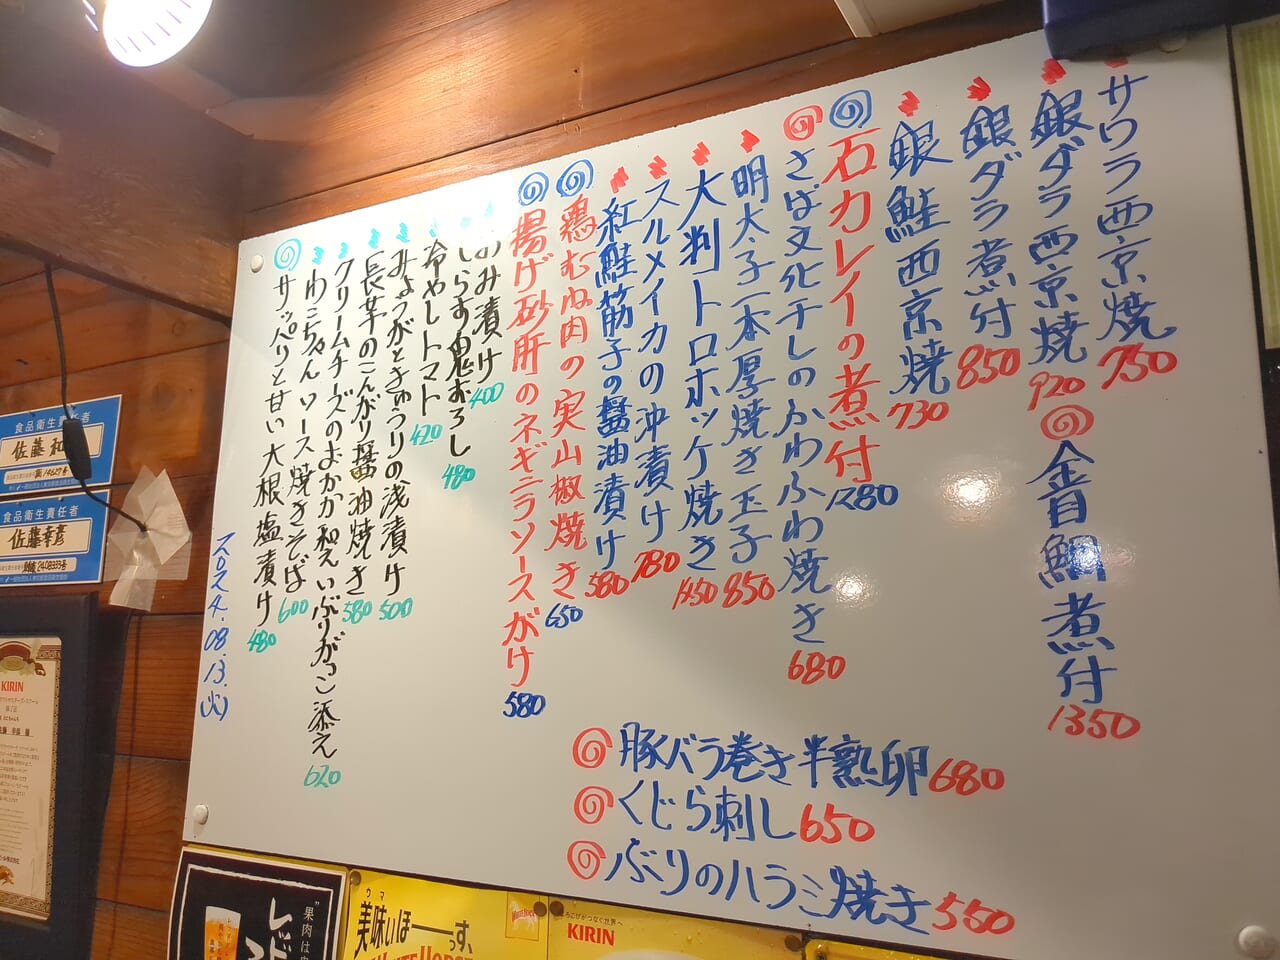 サワラ西京焼 750
銀ダラ西京焼 920
金目鯛煮付 1350
銀ダラ煮付 850
銀鮭西京焼 730
石カレイの煮付 1280
さば文化干しのふわふわ焼き 680
明太子一本厚焼き玉子 850
大判トロホッケ焼き 1450
スルメイカの沖漬け 780
紅鮭筋子の醤油漬け 580
鶏むね肉の実山椒焼き 650
揚げ砂肝のネギニラソースがけ 580
豚バラ巻き半熟卵 680
くじら刺し 650
ぶりのハラミ焼き 550
のみ漬け 400
しらす鬼おろし 480
冷やしトマト 420
みょうがときゅうりの浅漬け 500
長芋のこんがり醤油焼き 580
クリームチーズのおかか和えいぶりがっこ添え 620
わこちゃんソース焼きそば 600
サッパリと甘い大根塩漬け 480
2024.08.13.(火)
食品衛生責任者
佐藤
食品衛生責任者
佐藤幸彦
KIRIN
"果肉は
ウマ
美味いほーーっす、
WHITE HORSE
よろこびがつなぐ世界へ
KIRIN